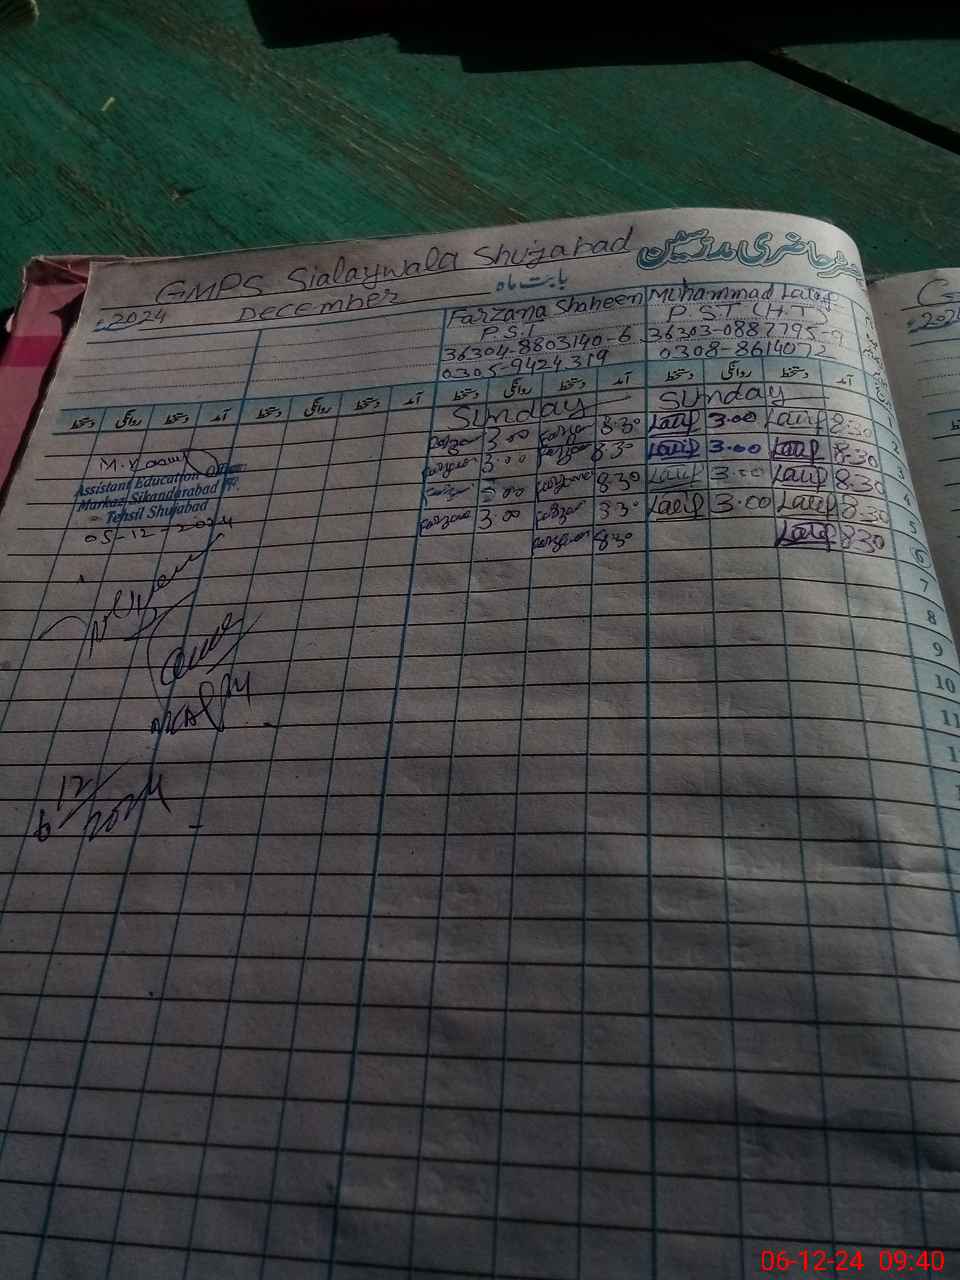 GMPS Sialaywala Shujabad
رجسٹر حاضری مدرسین
بابت ماہ
December
2024
Farzana Shaheen
P.S.T
36304-8803140-6
0305-9424319
Muhammad Latif
P.S.T (H.T)
36303-0887795-9
0308-8614072
دستخط روانگی دستخط آمد دستخط روانگی دستخط آمد دستخط روانگی دستخط آمد دستخط روانگی دستخط آمد
Sunday Sunday 1
3.00 8.30 Latif 3.00 Latif 8.30 2
3.00 8.30 Latif 3.00 Latif 8.30 3
3.00 8.30 Latif 3.00 Latif 8.30 4
3.00 8.30 Latif 3.00 Latif 8.30 5
8.30 Latif 8.30 6
7
8
9
10
11
Assistant Education Officer
Markaz Sikandarabad
Tehsil Shujabad
05-12-2024
6 12
2024
06-12-24 09:40